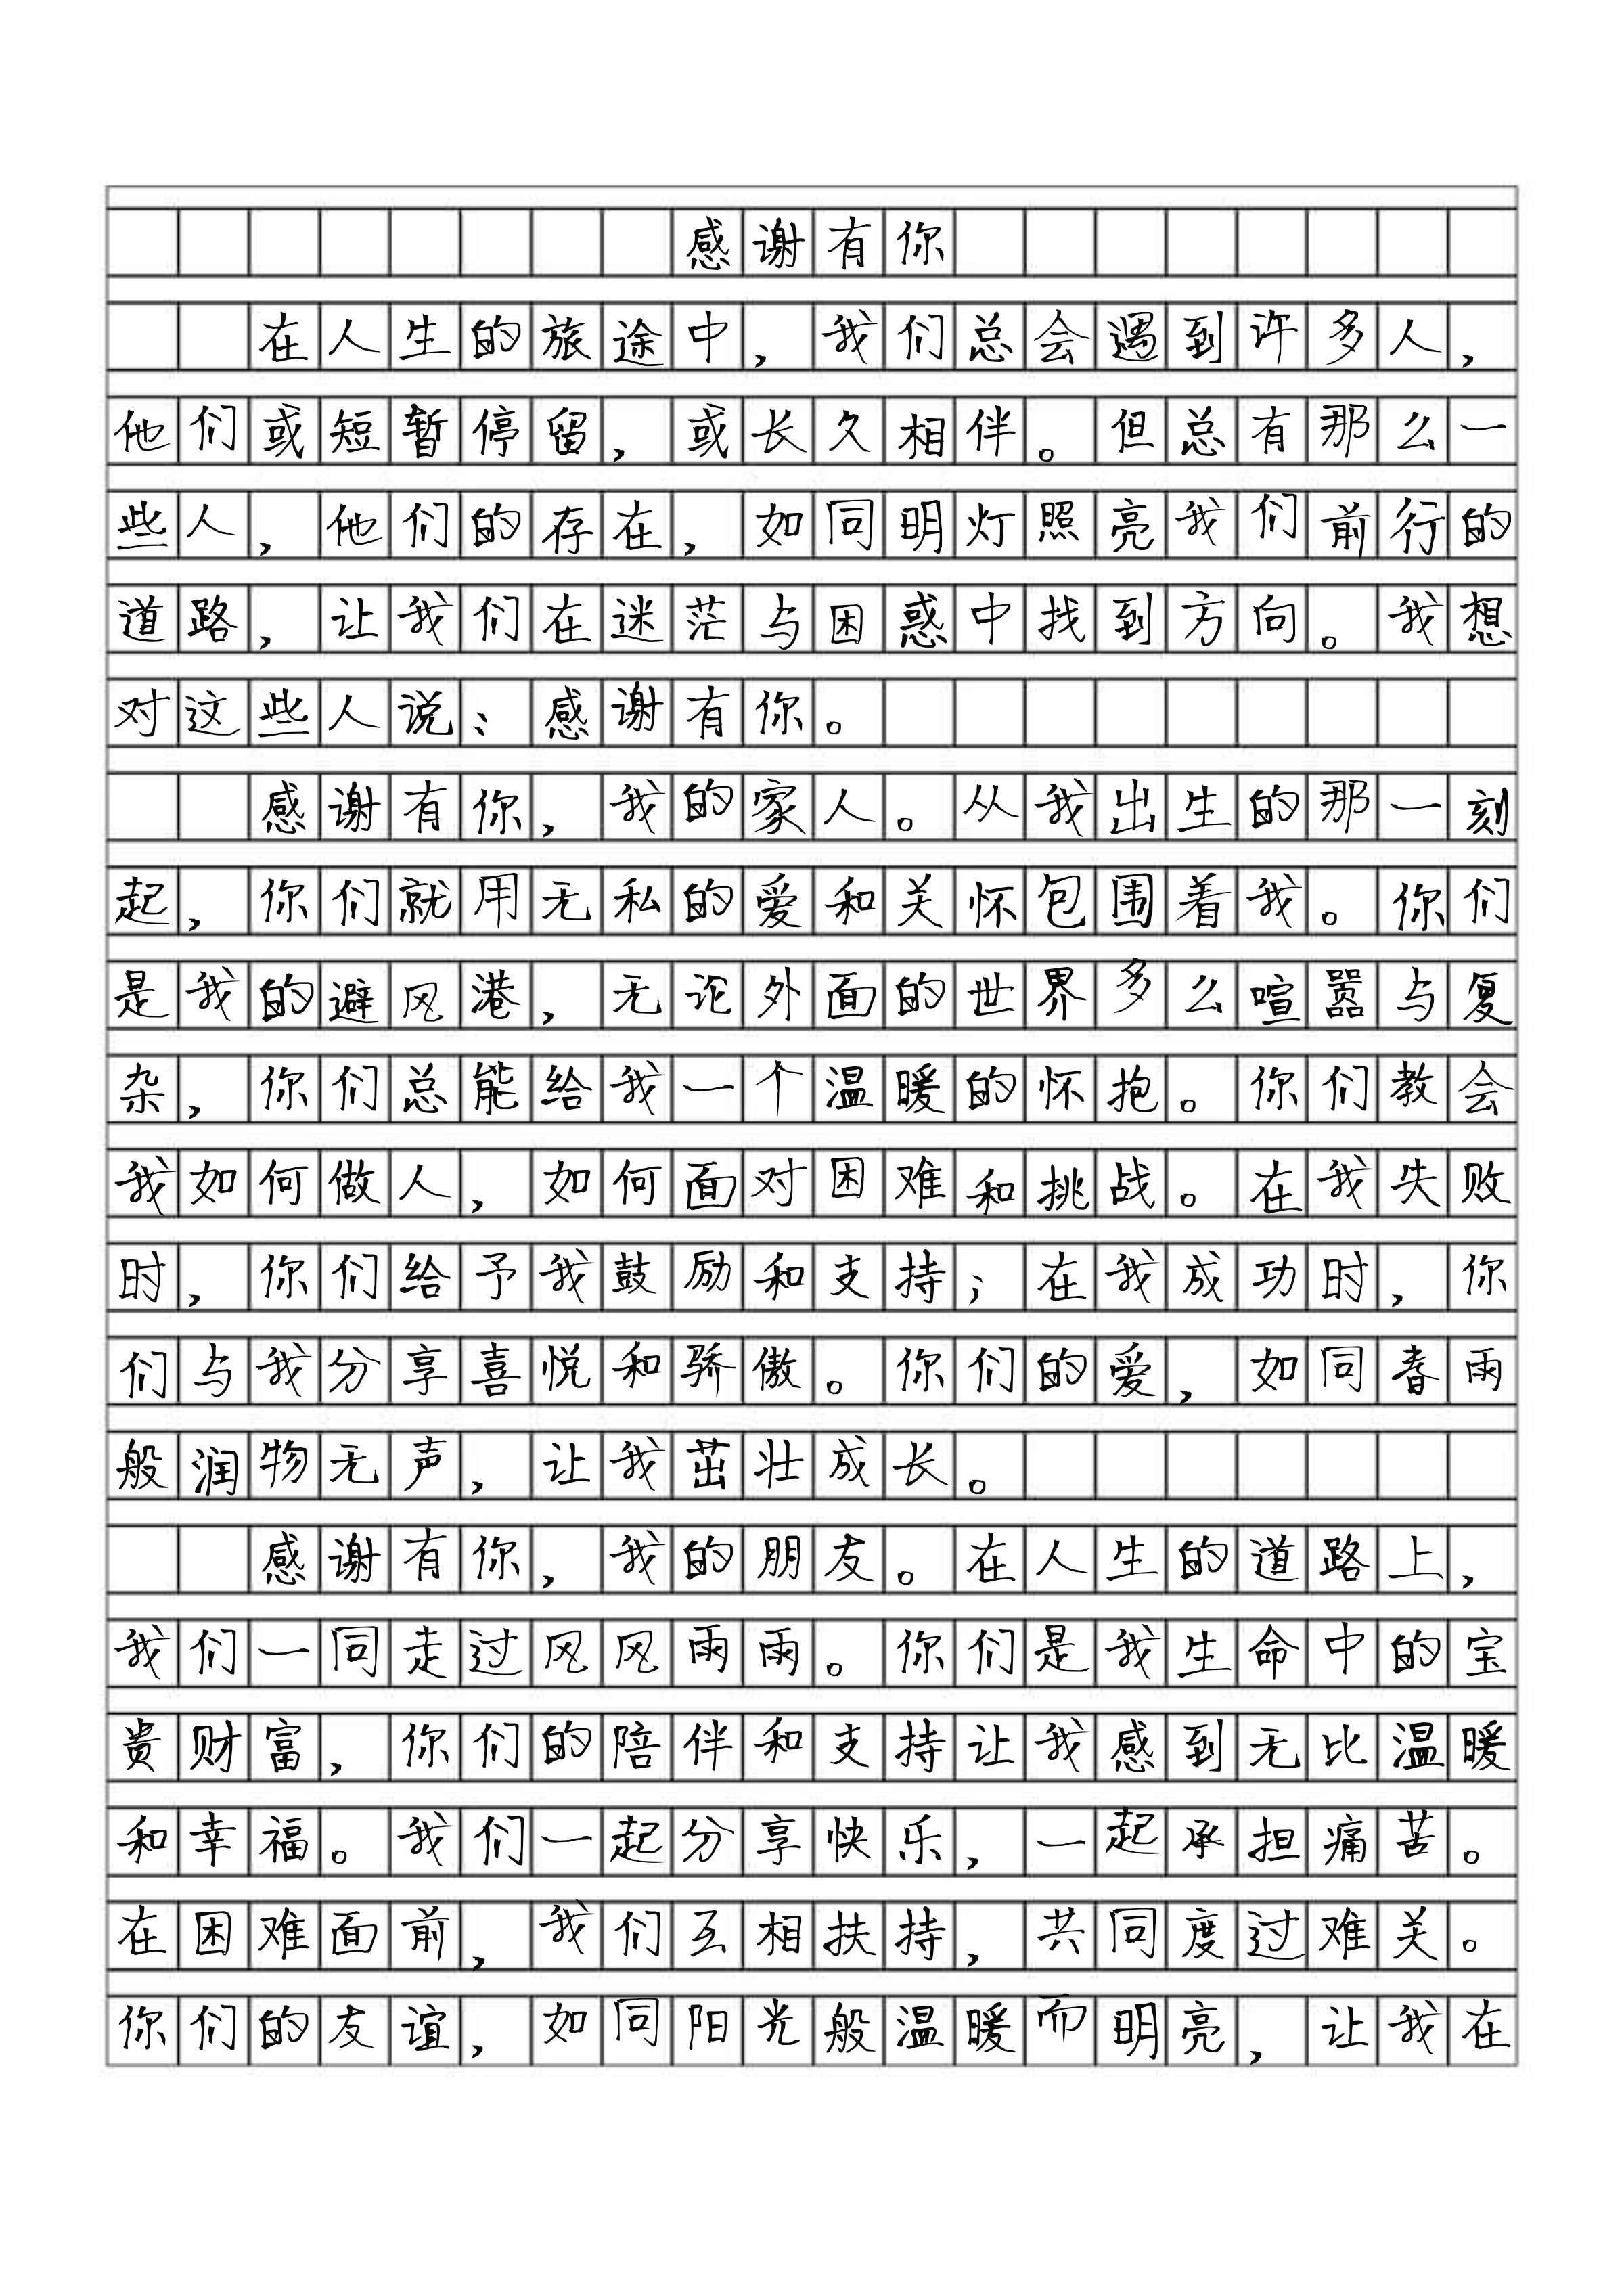 感谢有你
在人生的旅途中，我们总会遇到许多人，
他们或短暂停留，或长久相伴。但总有那么一
些人，他们的存在，如同明灯照亮我们前行的
道路，让我们在迷茫与困惑中找到方向。我想
对这些人说：感谢有你。
感谢有你，我的家人。从我出生的那一刻
起，你们就用无私的爱和关怀包围着我。你们
是我的避风港，无论外面的世界多么喧嚣与复
杂，你们总能给我一个温暖的怀抱。你们教会
我如何做人，如何面对困难和挑战。在我失败
时，你们给予我鼓励和支持；在我成功时，你
们与我分享喜悦和骄傲。你们的爱，如同春雨
般润物无声，让我茁壮成长。
感谢有你，我的朋友。在人生的道路上，
我们一同走过风风雨雨。你们是我生命中的宝
贵财富，你们的陪伴和支持让我感到无比温暖
和幸福。我们一起分享快乐，一起承担痛苦。
在困难面前，我们互相扶持，共同度过难关。
你们的友谊，如同阳光般温暖而明亮，让我在